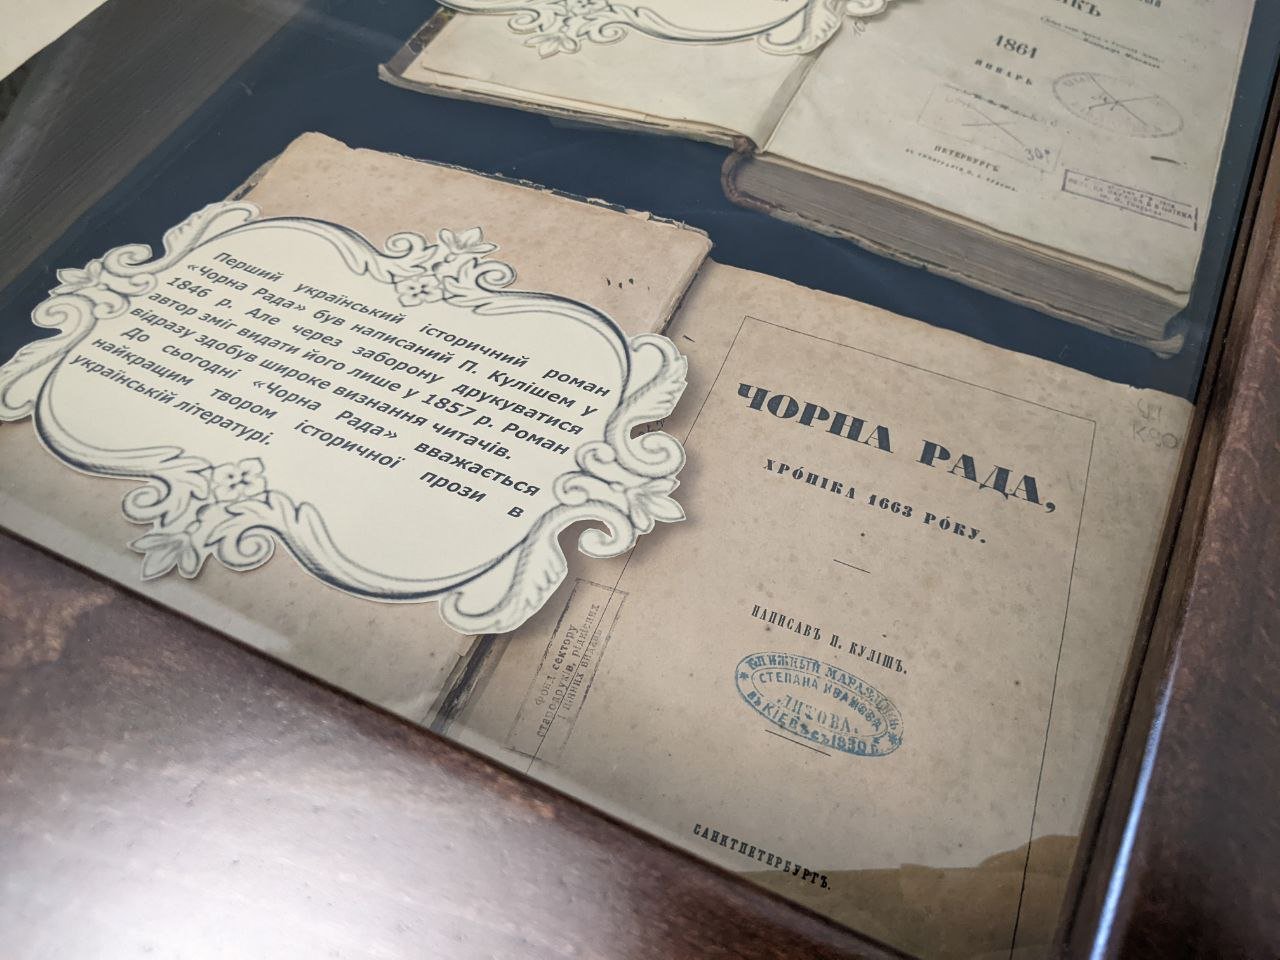 1861
ЯНВАРЬ
30*
ПЕТЕРБУРГЪ
Перший український історичний роман
«Чорна Рада» був написаний П. Кулішем у
1846 р. Але через заборону друкуватися
автор зміг видати його лише у 1857 р. Роман
відразу здобув широке визнання читачів.
До сьогодні «Чорна Рада» вважається
найкращим твором історичної прози в
українській літературі.
ЧОРНА РАДА,
ХРО́НІКА 1663 РО́КУ.
НАПИСАВЪ П. КУЛІШЪ.
КНИЖНЫЙ МАГАЗИНЪ
СТЕПАНА ИВАНОВА
ЛИТОВА.
въ КІЕВѢ съ 1830 г.
Фонд сектору
стародруків, рідкісних
і цінних видань
САНКТПЕТЕРБУРГЪ.